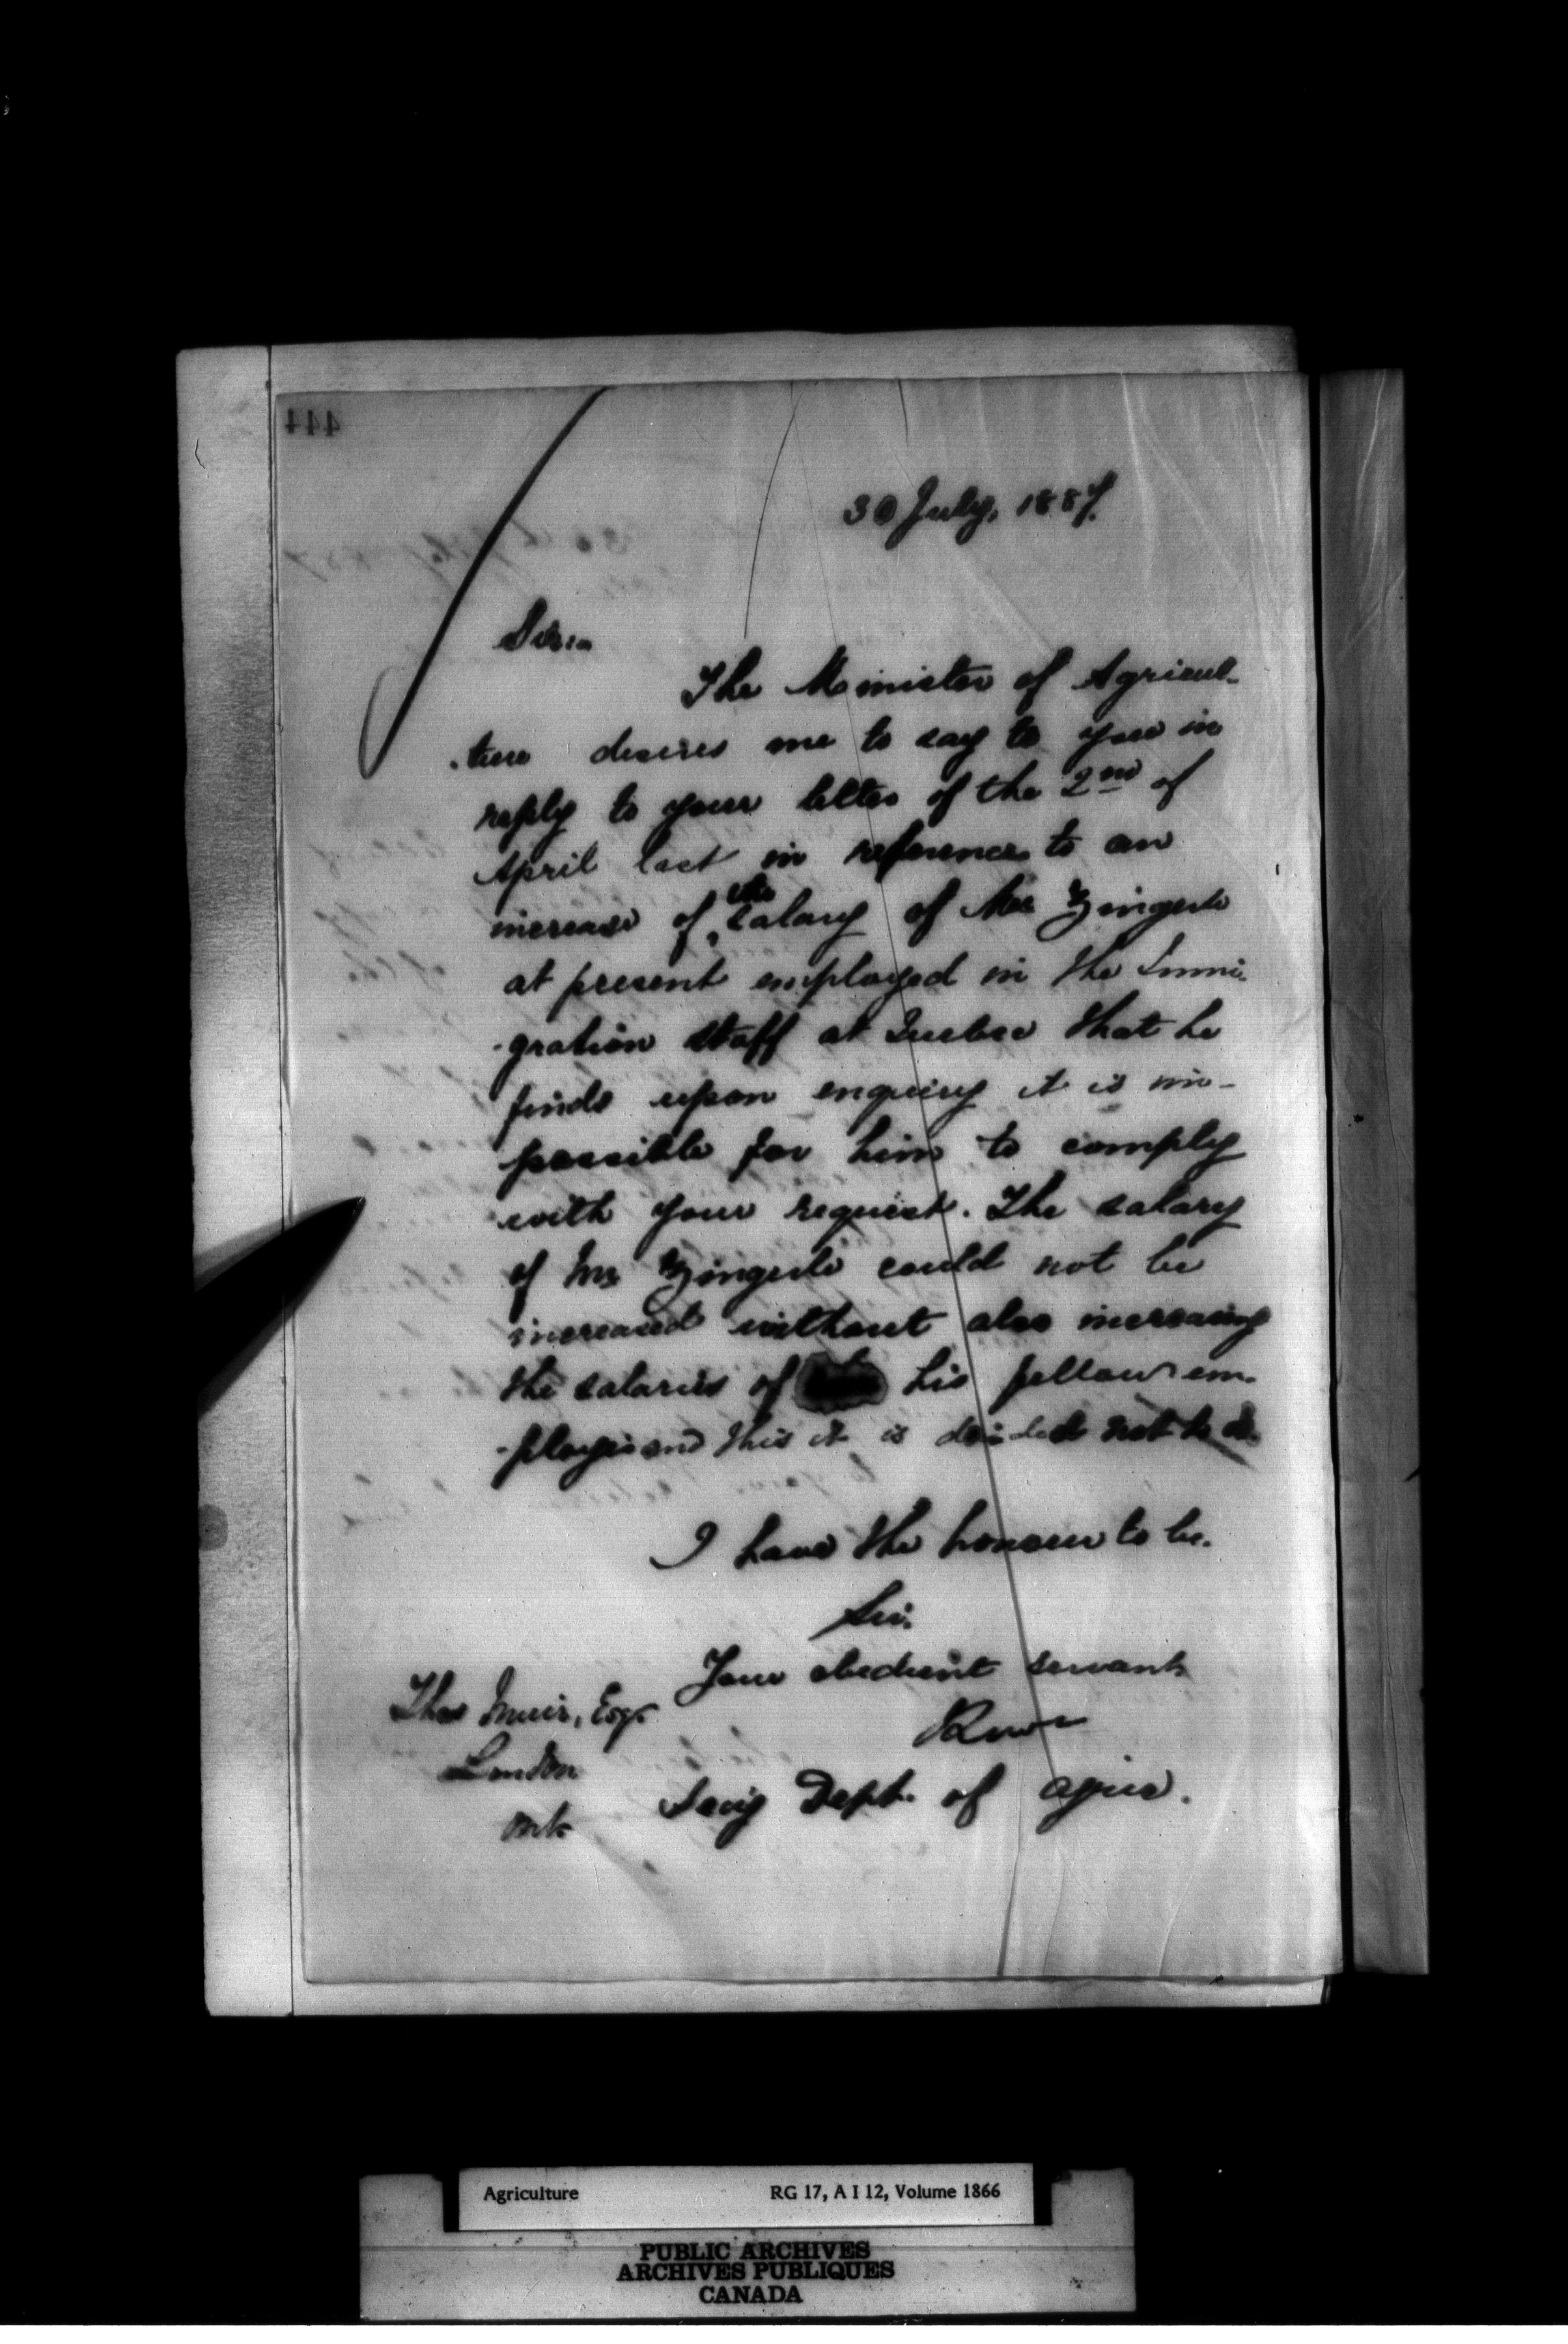 444
30 July, 1887.
Sir:-
The Minister of Agricul-
-ture desires me to say to you in
reply to your letter of the 2nd of
April last in reference to an
increase of the salary of Mr Zingerle
at present employed in the Immi-
-gration Staff at Quebec that he
finds upon enquiry it is im-
possible for him to comply
with your request. The salary
of Mr Zingerle could not be
increased without also increasing
the salaries of his fellow em-
-ployés and this it is decided not to do.
I have the honour to be.
Sir.
Your obedient servant
Thos Muir, Esqr
London
Ont
Secy Dept. of Agric.
Agriculture RG 17, A I 12, Volume 1866
PUBLIC ARCHIVES
ARCHIVES PUBLIQUES
CANADA